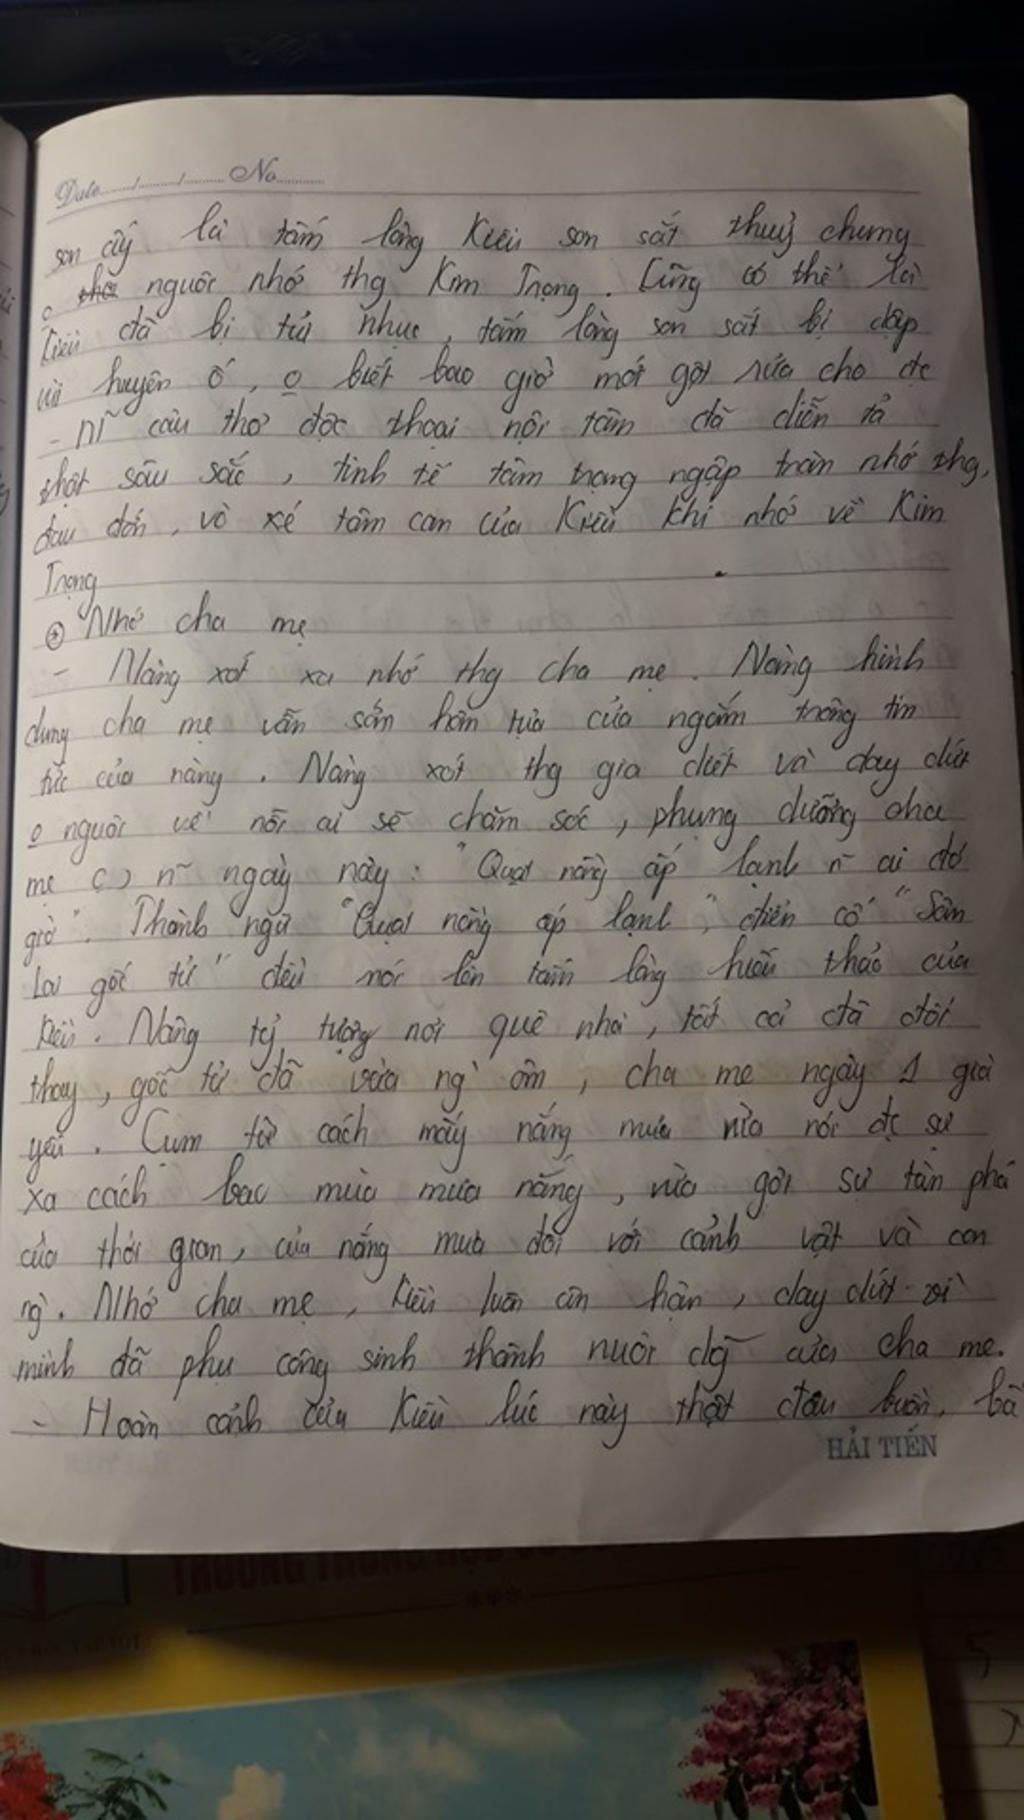 Date....../......../........ No...........
son ấy là tấm lòng Kiều son sắt thuỷ chung
o nguôi nhớ thg Kim Trọng. Cũng có thể là
Kiều đã bị tủi nhục, tấm lòng son sắt bị dập
vùi hoen ố, o biết bao giờ mới gột rửa cho đc
- n~ câu thơ độc thoại nội tâm đã diễn tả
thật sâu sắc, tinh tế tâm trạng ngập tràn nhớ thg,
đau đớn, vò xé tâm can của Kiều khi nhớ về Kim
Trọng
Nhớ cha mẹ
- Nàng xót xa nhớ thg cha mẹ. Nàng hình
dung cha mẹ vẫn sớm hôm tựa cửa ngóng trông tin
tức của nàng. Nàng xót thg gia diết và day dứt
o nguôi về nỗi ai sẽ chăm sóc, phụng dưỡng cha
mẹ n~ ngày này: "Quạt nồng ấp lạnh n~ ai đó
giờ". Thành ngữ "Quạt nồng ấp lạnh", điển cố "Sân
Lai gốc tử" đều nói lên tấm lòng hiếu thảo của
Kiều. Nàng tg tượng nơi quê nhà, tất cả đã đổi
thay, gốc tử đã vừa ng` ôm, cha mẹ ngày 1 già
yếu. Cụm từ cách mấy nắng mưa vừa nói đc sự
xa cách bao mùa mưa nắng, vừa gợi sự tàn phá
của thời gian, của nắng mưa đối với cảnh vật và con
ng`. Nhớ cha mẹ, Kiều luôn ân hận, day dứt vì
mình đã phụ công sinh thành nuôi dg~ của cha mẹ.
- Hoàn cảnh của Kiều lúc này thật đau buồn,
HẢI TIẾN